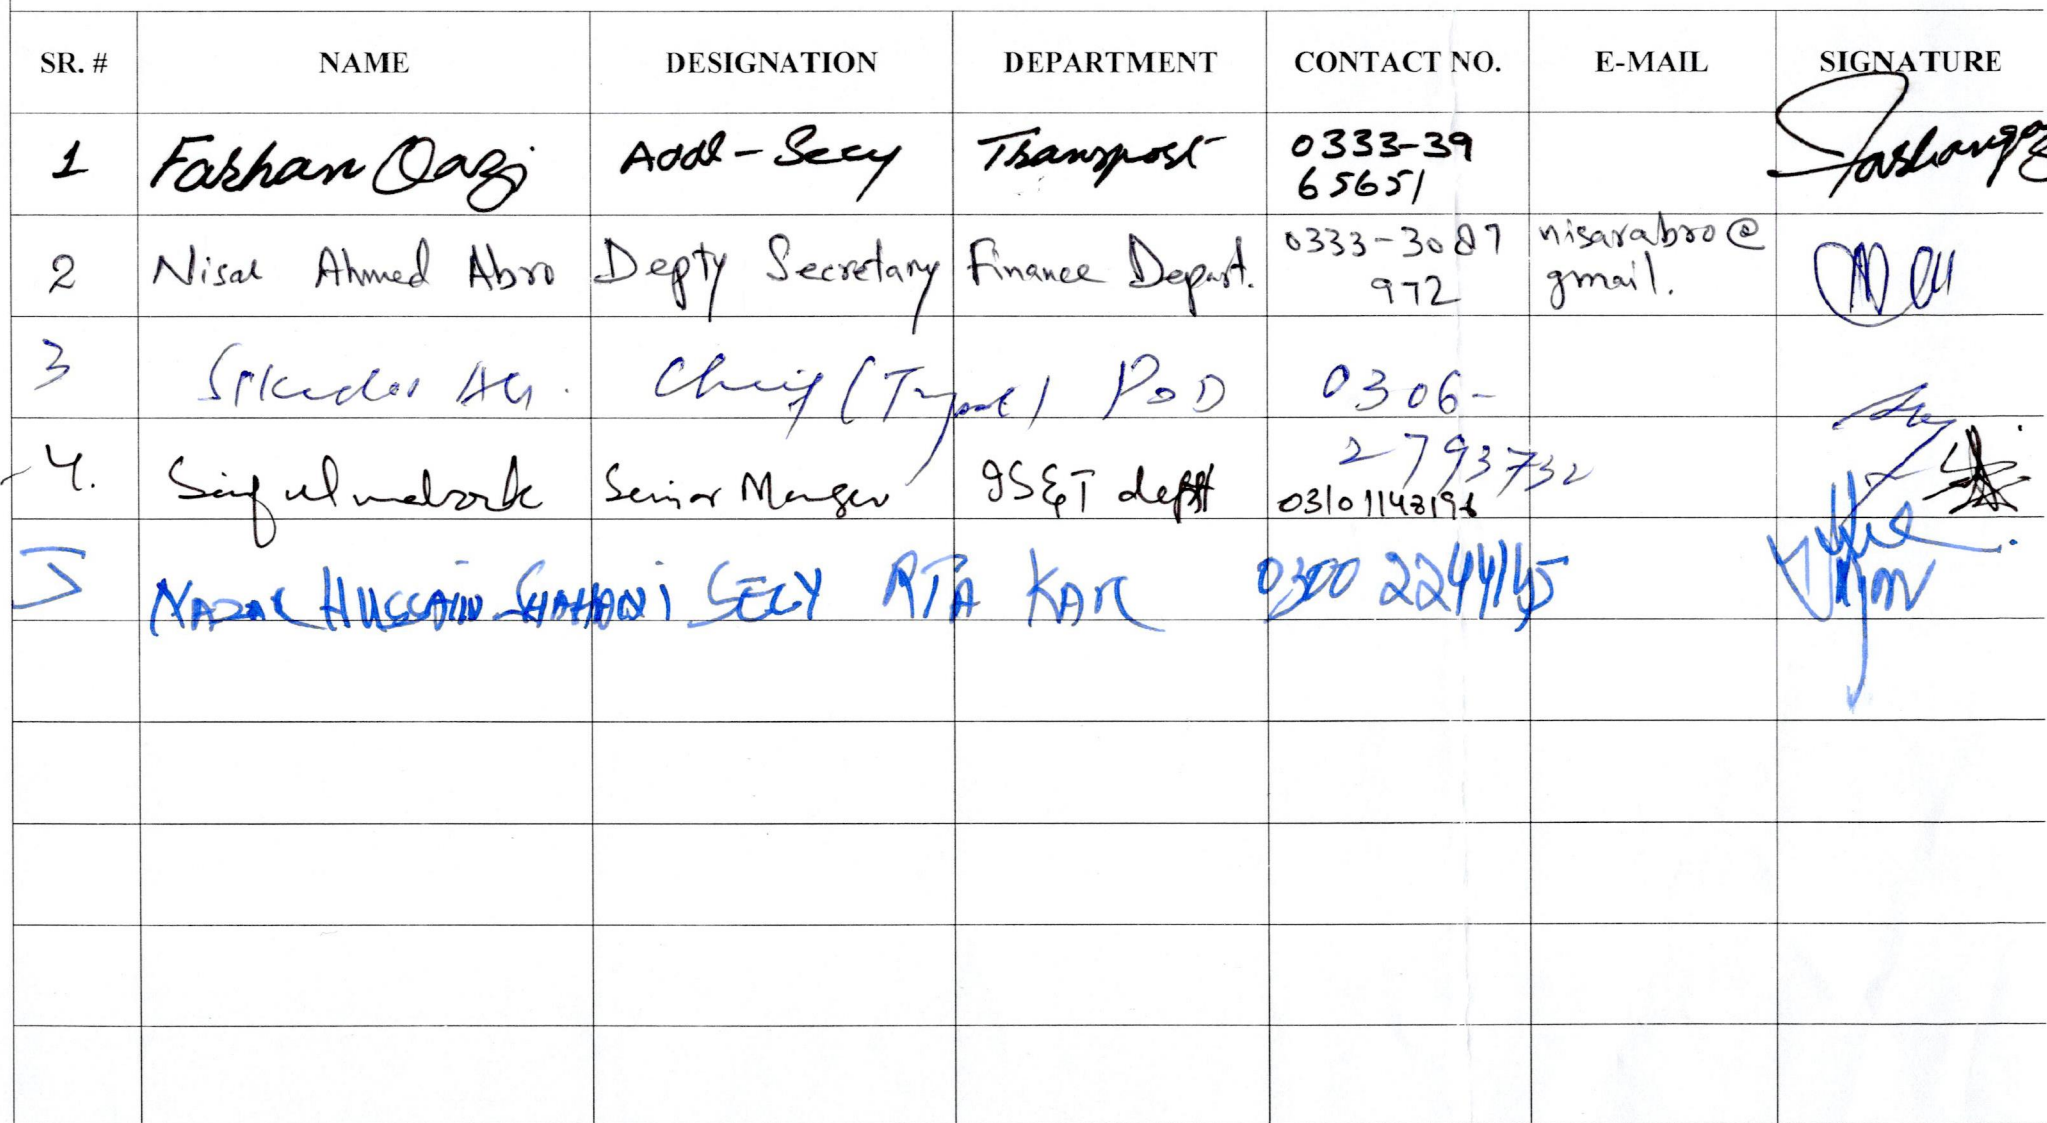 SR. # NAME DESIGNATION DEPARTMENT CONTACT NO. E-MAIL SIGNATURE
1 Farhan Qazi Addl-Secy Transport 0333-39
65651
2 Nisar Ahmed Abro Depty Secretary Finance Depart. 0333-3087 nisarabro@
972 gmail.
3 Chief ( ) P&D 0306-
2793732
4. Saif Senior Manager IS&T deptt
5 NAZAR HUSSAIN SHAHANI SECY RTA KAR 0300 2244145